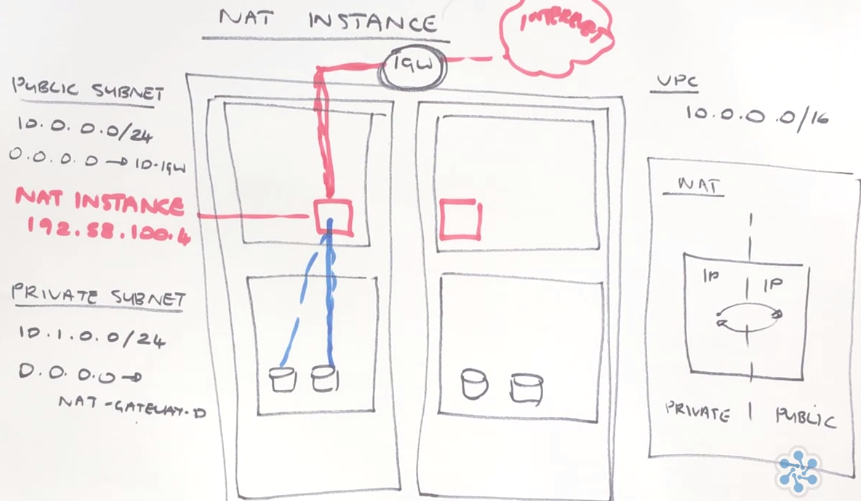 NAT INSTANCE
INTERNET
IGW
PUBLIC SUBNET
10.0.0.0/24
0.0.0.0 → ID-IGW
NAT INSTANCE
192.58.100.4
PRIVATE SUBNET
10.1.0.0/24
0.0.0.0 →
NAT-GATEWAY-D
VPC
10.0.0.0/16
NAT
IP | IP
PRIVATE | PUBLIC